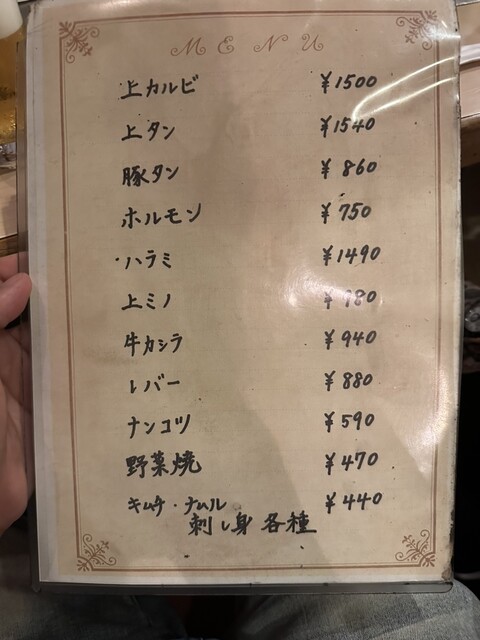 MENU
上カルビ ¥1500
上タン ¥1540
豚タン ¥860
ホルモン ¥750
・ハラミ ¥1490
上ミノ ¥980
牛カシラ ¥940
レバー ¥880
ナンコツ ¥590
野菜焼 ¥470
キムチ・ナムル ¥440
刺し身 各種